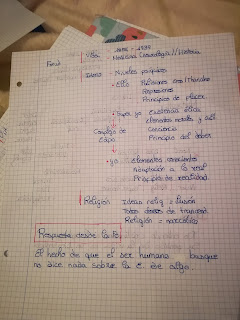 Freud
Vida - 1856 - 1939
Medicina (neurología) // Histeria
Ideas - Niveles psíquicos
- Ello Pulsiones
Represiones
Principio de placer
- Super yo Existencia
Elementos morales y del
Conciencia
Principio del deber
Complejo de
Edipo
- yo - elementos conscientes
Adaptación a la real
Principio de realidad
Religión Ideas relig = ilusión
Todos deseos de
Religión = narcótico
Respuesta desde la fe
El hecho de que el ser humano busque
no dice nada sobre la E. de algo.